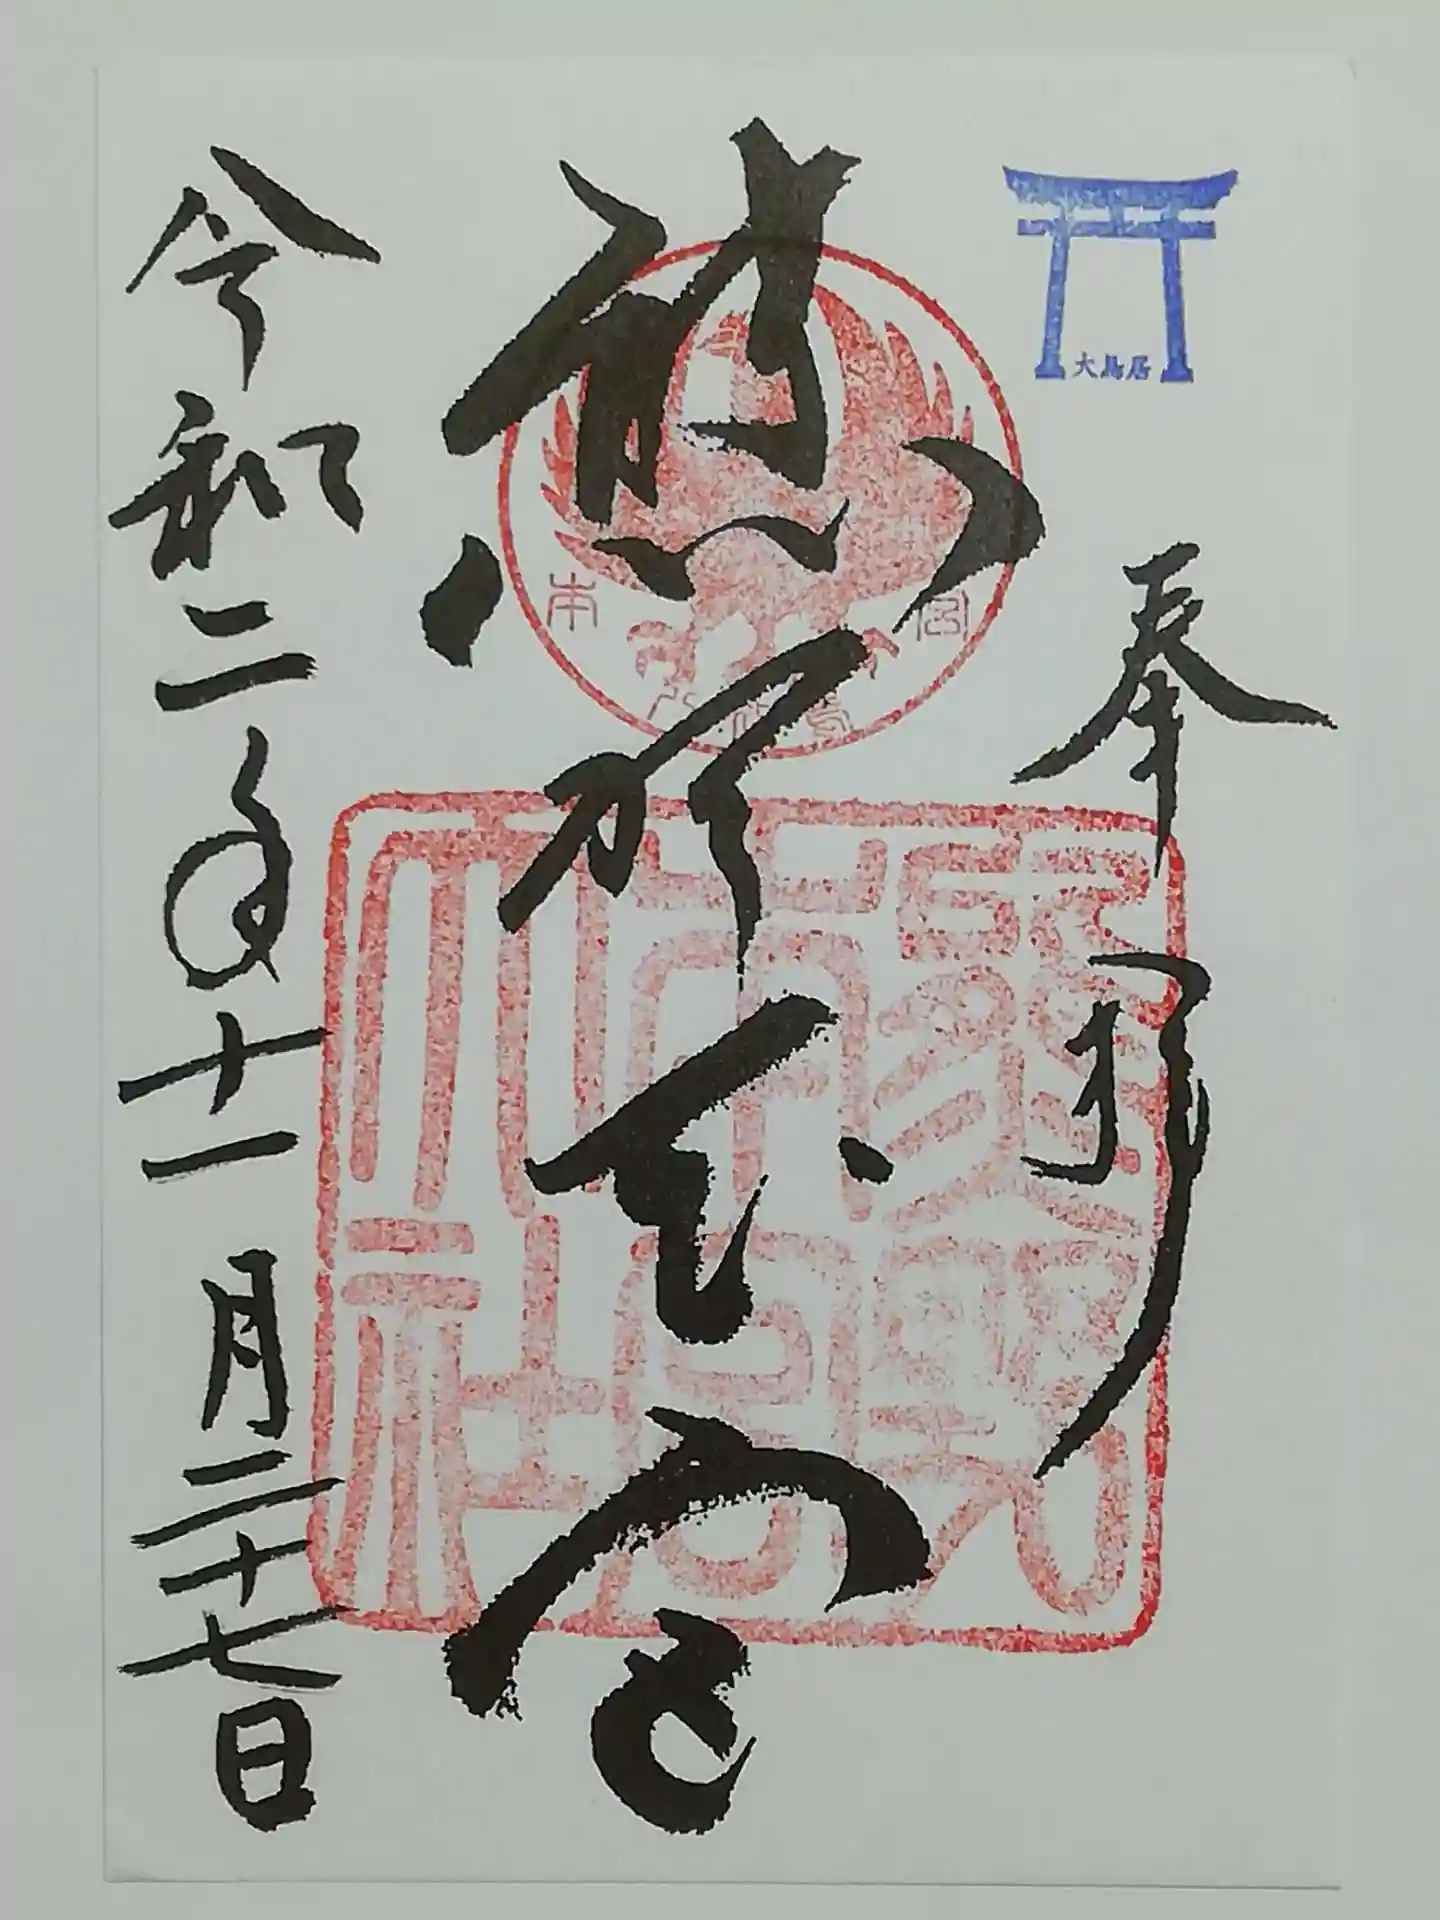 大鳥居
奉拝
熊野本宮
令和二年十一月二十七日
本宮
八咫烏
熊野
本宮
大社